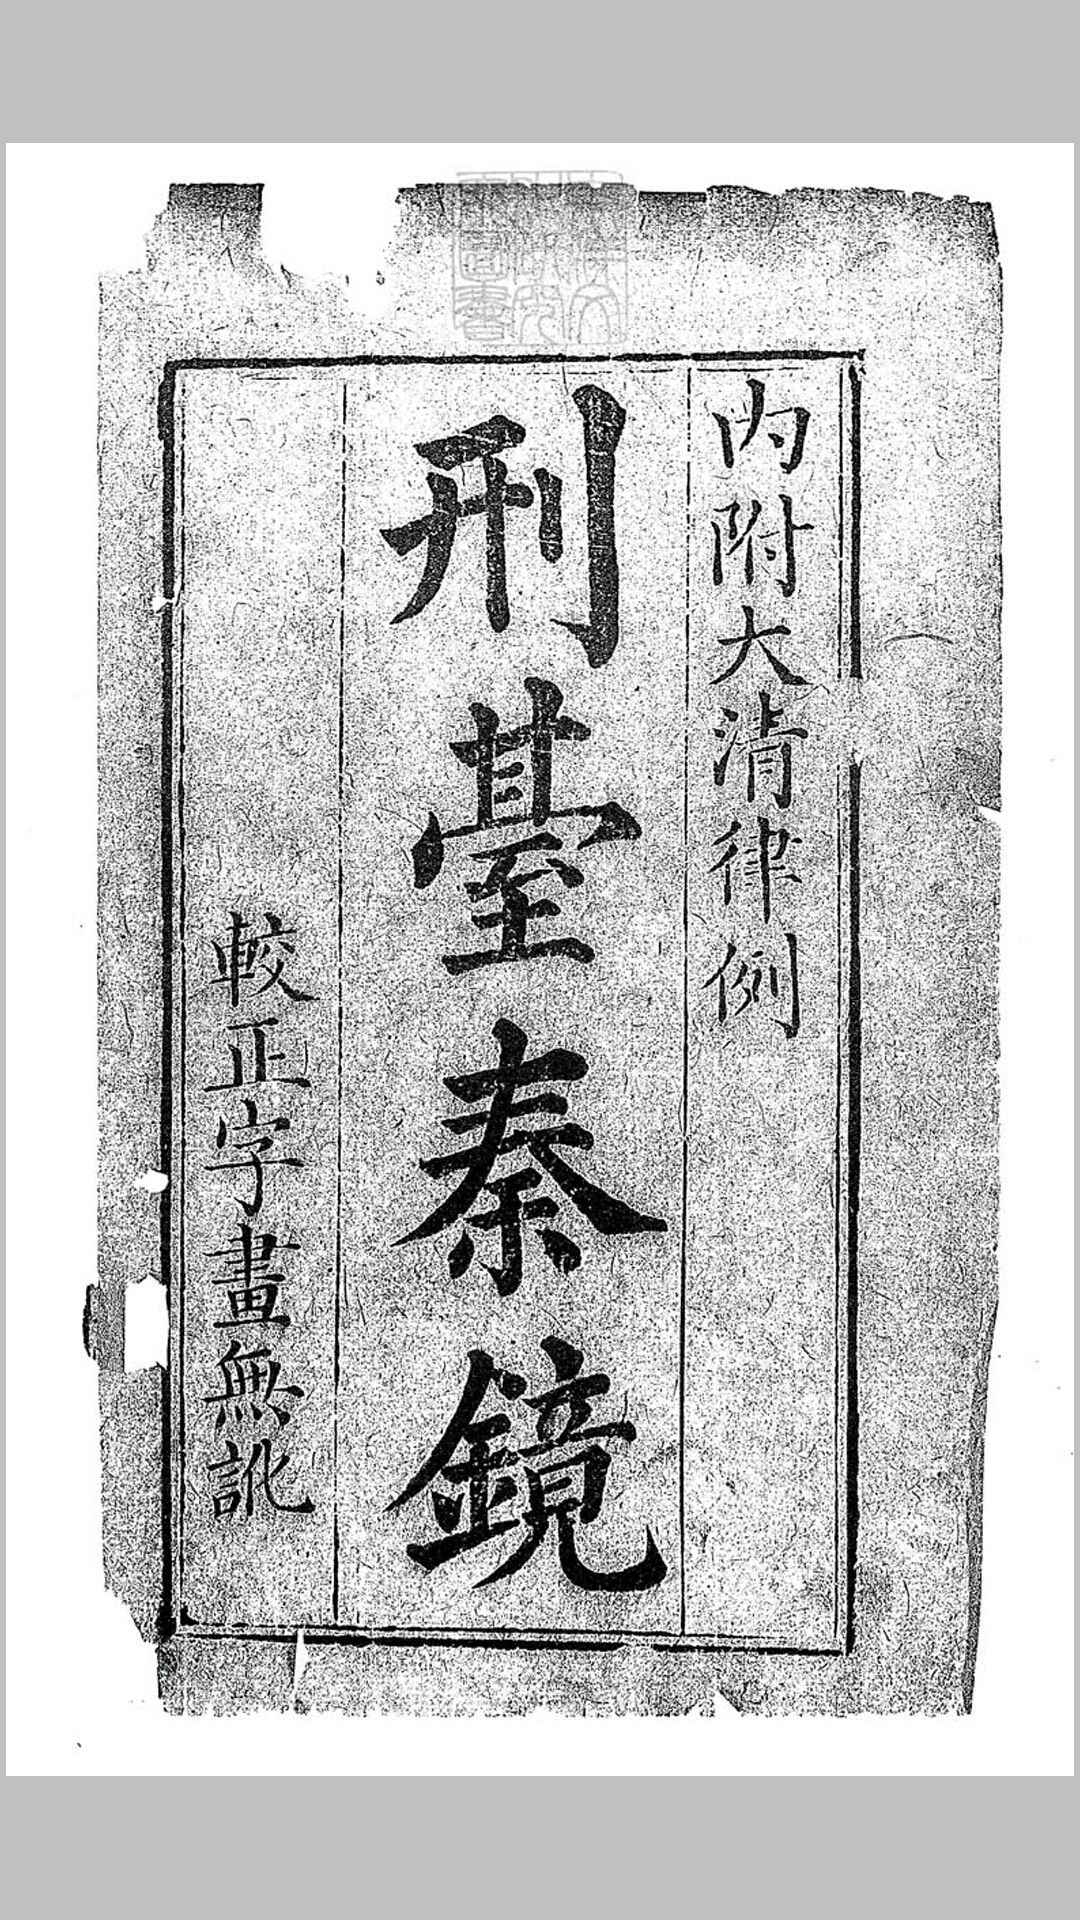 內附大清律例
刑臺秦鏡
較正字畫無訛